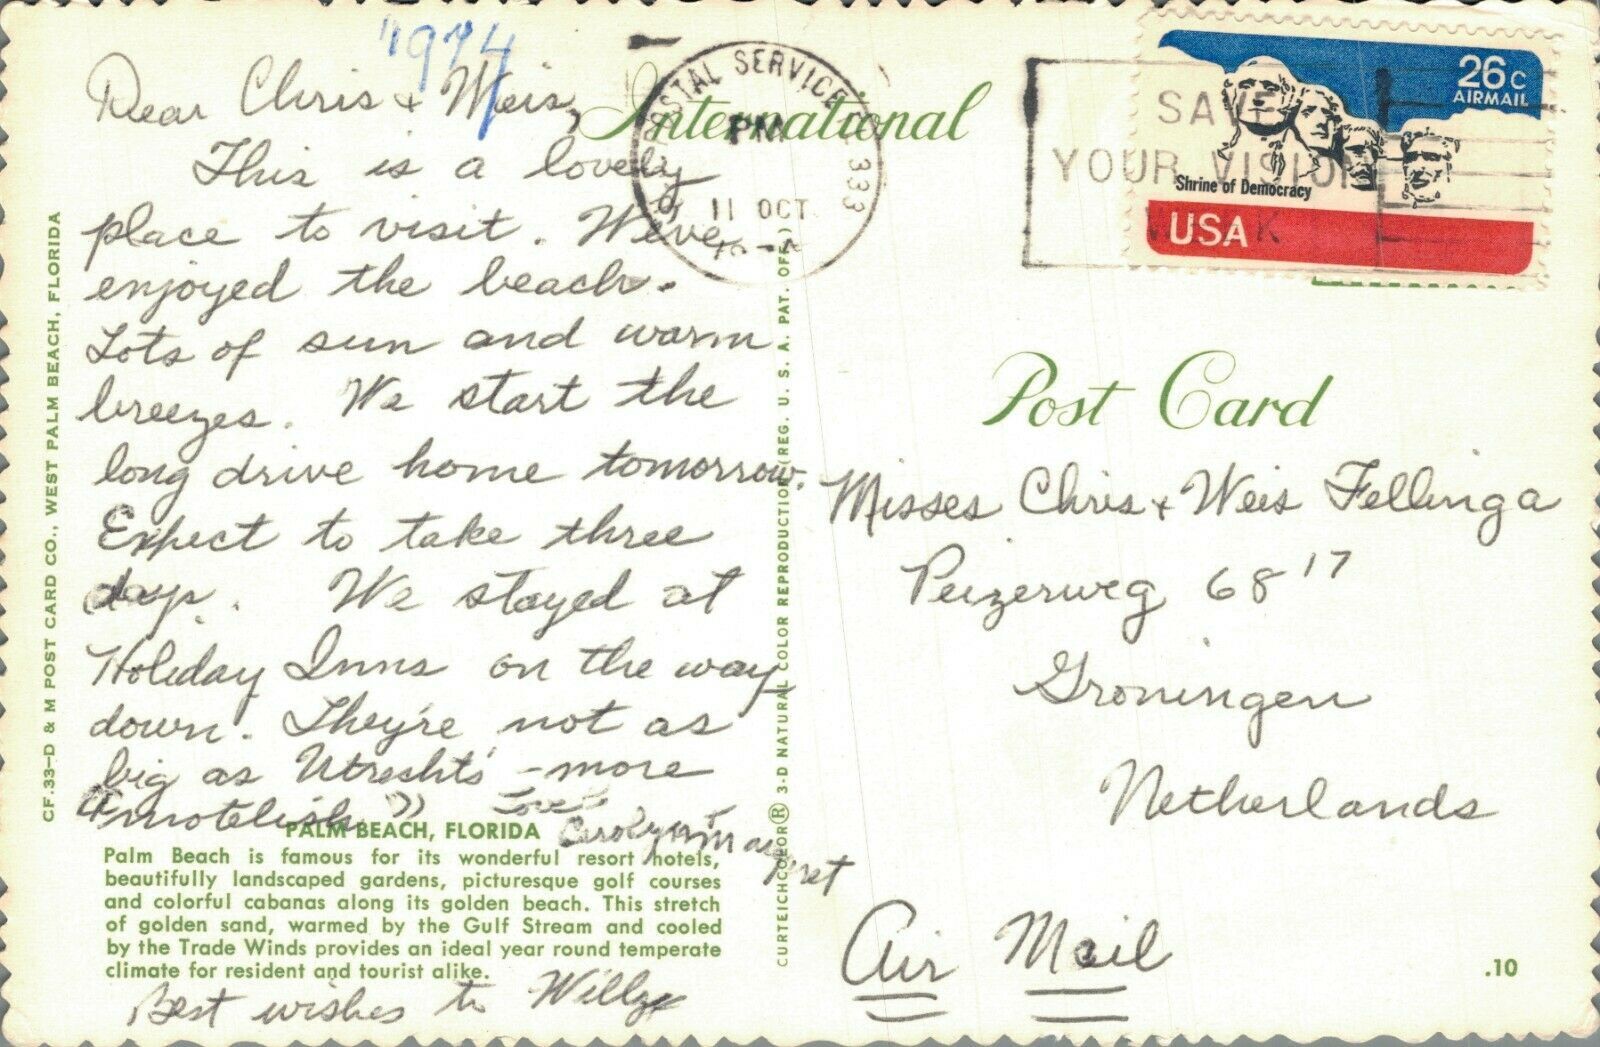 1974
Dear Chris + Weis,
This is a lovely
place to visit. We've
enjoyed the beach.
Lots of sun and warm
breezes. We start the
long drive home tomorrow.
Expect to take three
days. We stayed at
Holiday Inns on the way
down. They're not as
big as Utrecht's - more
"motelish"
Love
Carolyn + Margaret
PALM BEACH, FLORIDA
Palm Beach is famous for its wonderful resort hotels,
beautifully landscaped gardens, picturesque golf courses
and colorful cabanas along its golden beach. This stretch
of golden sand, warmed by the Gulf Stream and cooled
by the Trade Winds provides an ideal year round temperate
climate for resident and tourist alike.
Best wishes to Willy
CF.33-D & M POST CARD CO., WEST PALM BEACH, FLORIDA
CURTEICHCOLOR® 3-D NATURAL COLOR REPRODUCTION (REG. U. S. A. PAT. OFF.)
International
POSTAL SERVICE 333
PM
11 OCT
SAVE
YOUR VISION
26c
AIRMAIL
Shrine of Democracy
USA
Post Card
Misses Chris + Weis Fellinga
Peizerweg 68 17
Groningen
Netherlands
Air Mail
.10